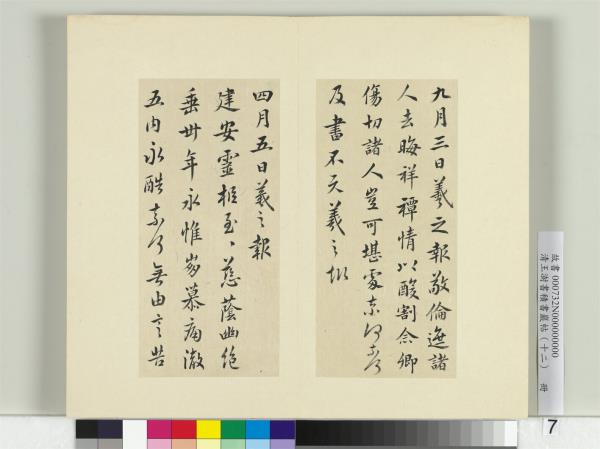 九月三日羲之報敬倫遮諸
人去晦祥禫情以酸割念卿
傷切諸人豈可堪處奈何奈何
及書不次羲之報
四月五日羲之報
建安靈柩至慈蔭幽絕
垂卅年永惟崩慕痛徹
五內永酷奈何無由言告
故書000732N000000000
清王澍書積書巖帖（十二） 冊
7